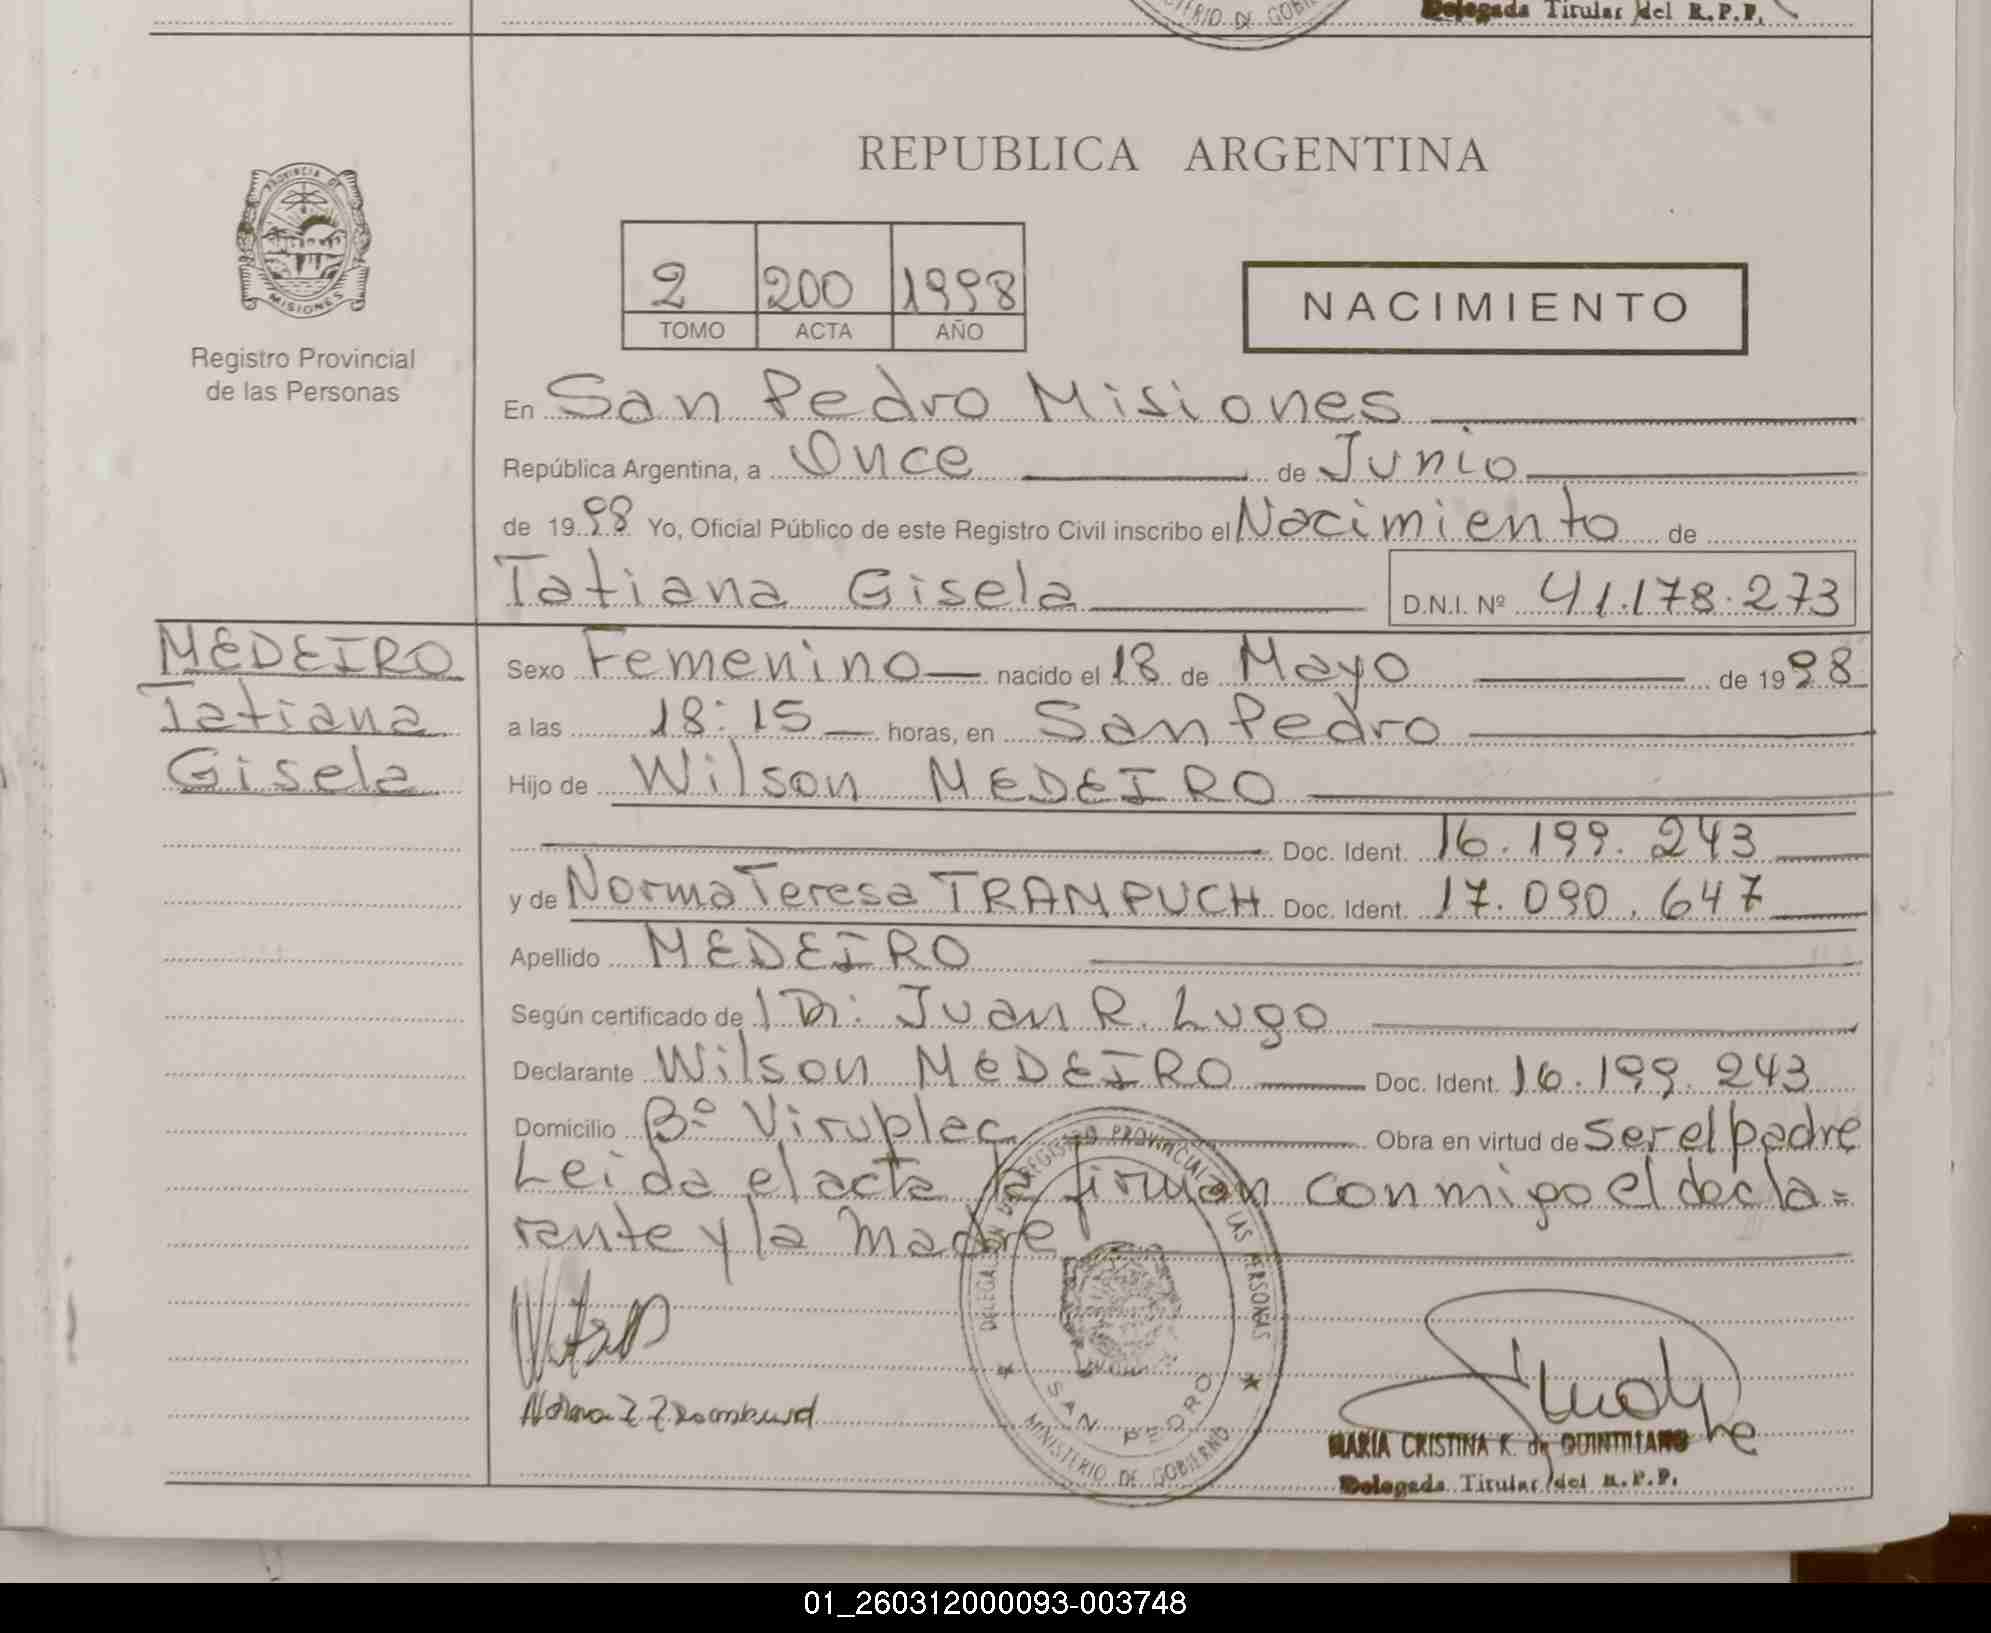 MINISTERIO DE GOBI
Delegada Titular del R.P.P.
PROVINCIA DE
MISIONES
Registro Provincial
de las Personas
REPUBLICA ARGENTINA
2 200 1998
TOMO ACTA AÑO
NACIMIENTO
En San Pedro Misiones
República Argentina, a Once de Junio
de 1998 Yo, Oficial Público de este Registro Civil inscribo el Nacimiento de
Tatiana Gisela D.N.I. Nº 41.178.273
MEDEIRO
Tatiana
Gisela
Sexo Femenino nacido el 18 de Mayo de 1998
a las 18:15 horas, en San Pedro
Hijo de Wilson MEDEIRO
Doc. Ident. 16.199.243
y de Norma Teresa TRAMPUCH Doc. Ident. 17.090.647
Apellido MEDEIRO
Según certificado de l Dr: Juan R. Lugo
Declarante Wilson MEDEIRO Doc. Ident. 16.199.243
Domicilio Bº Viruplec Obra en virtud de ser el padre
Leida el acta la firman conmigo el decla=
rante y la madre
DELEGACION DE REGISTRO PROVINCIAL DE LAS PERSONAS
SAN PEDRO
MINISTERIO DE GOBIERNO
Norma T
MARIA CRISTINA K. de QUINTILIANO
Delegada Titular del R.P.P.
01_260312000093-003748